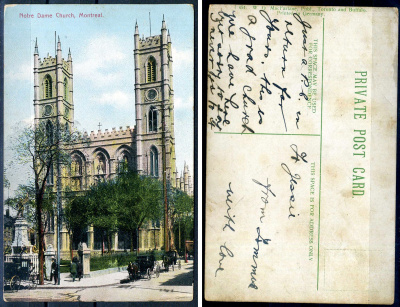 Notre Dame Church, Montreal.
W. G. MacFarlane, Publ., Toronto and Buffalo.
Printed in Germany.
PRIVATE POST CARD
THIS SPACE MAY BE USED
FOR CORRESPONDENCE
THIS SPACE IS FOR ADDRESS ONLY
Just a P.C. in
return for
yours, this is
a grand church
To Jessie
from
with love